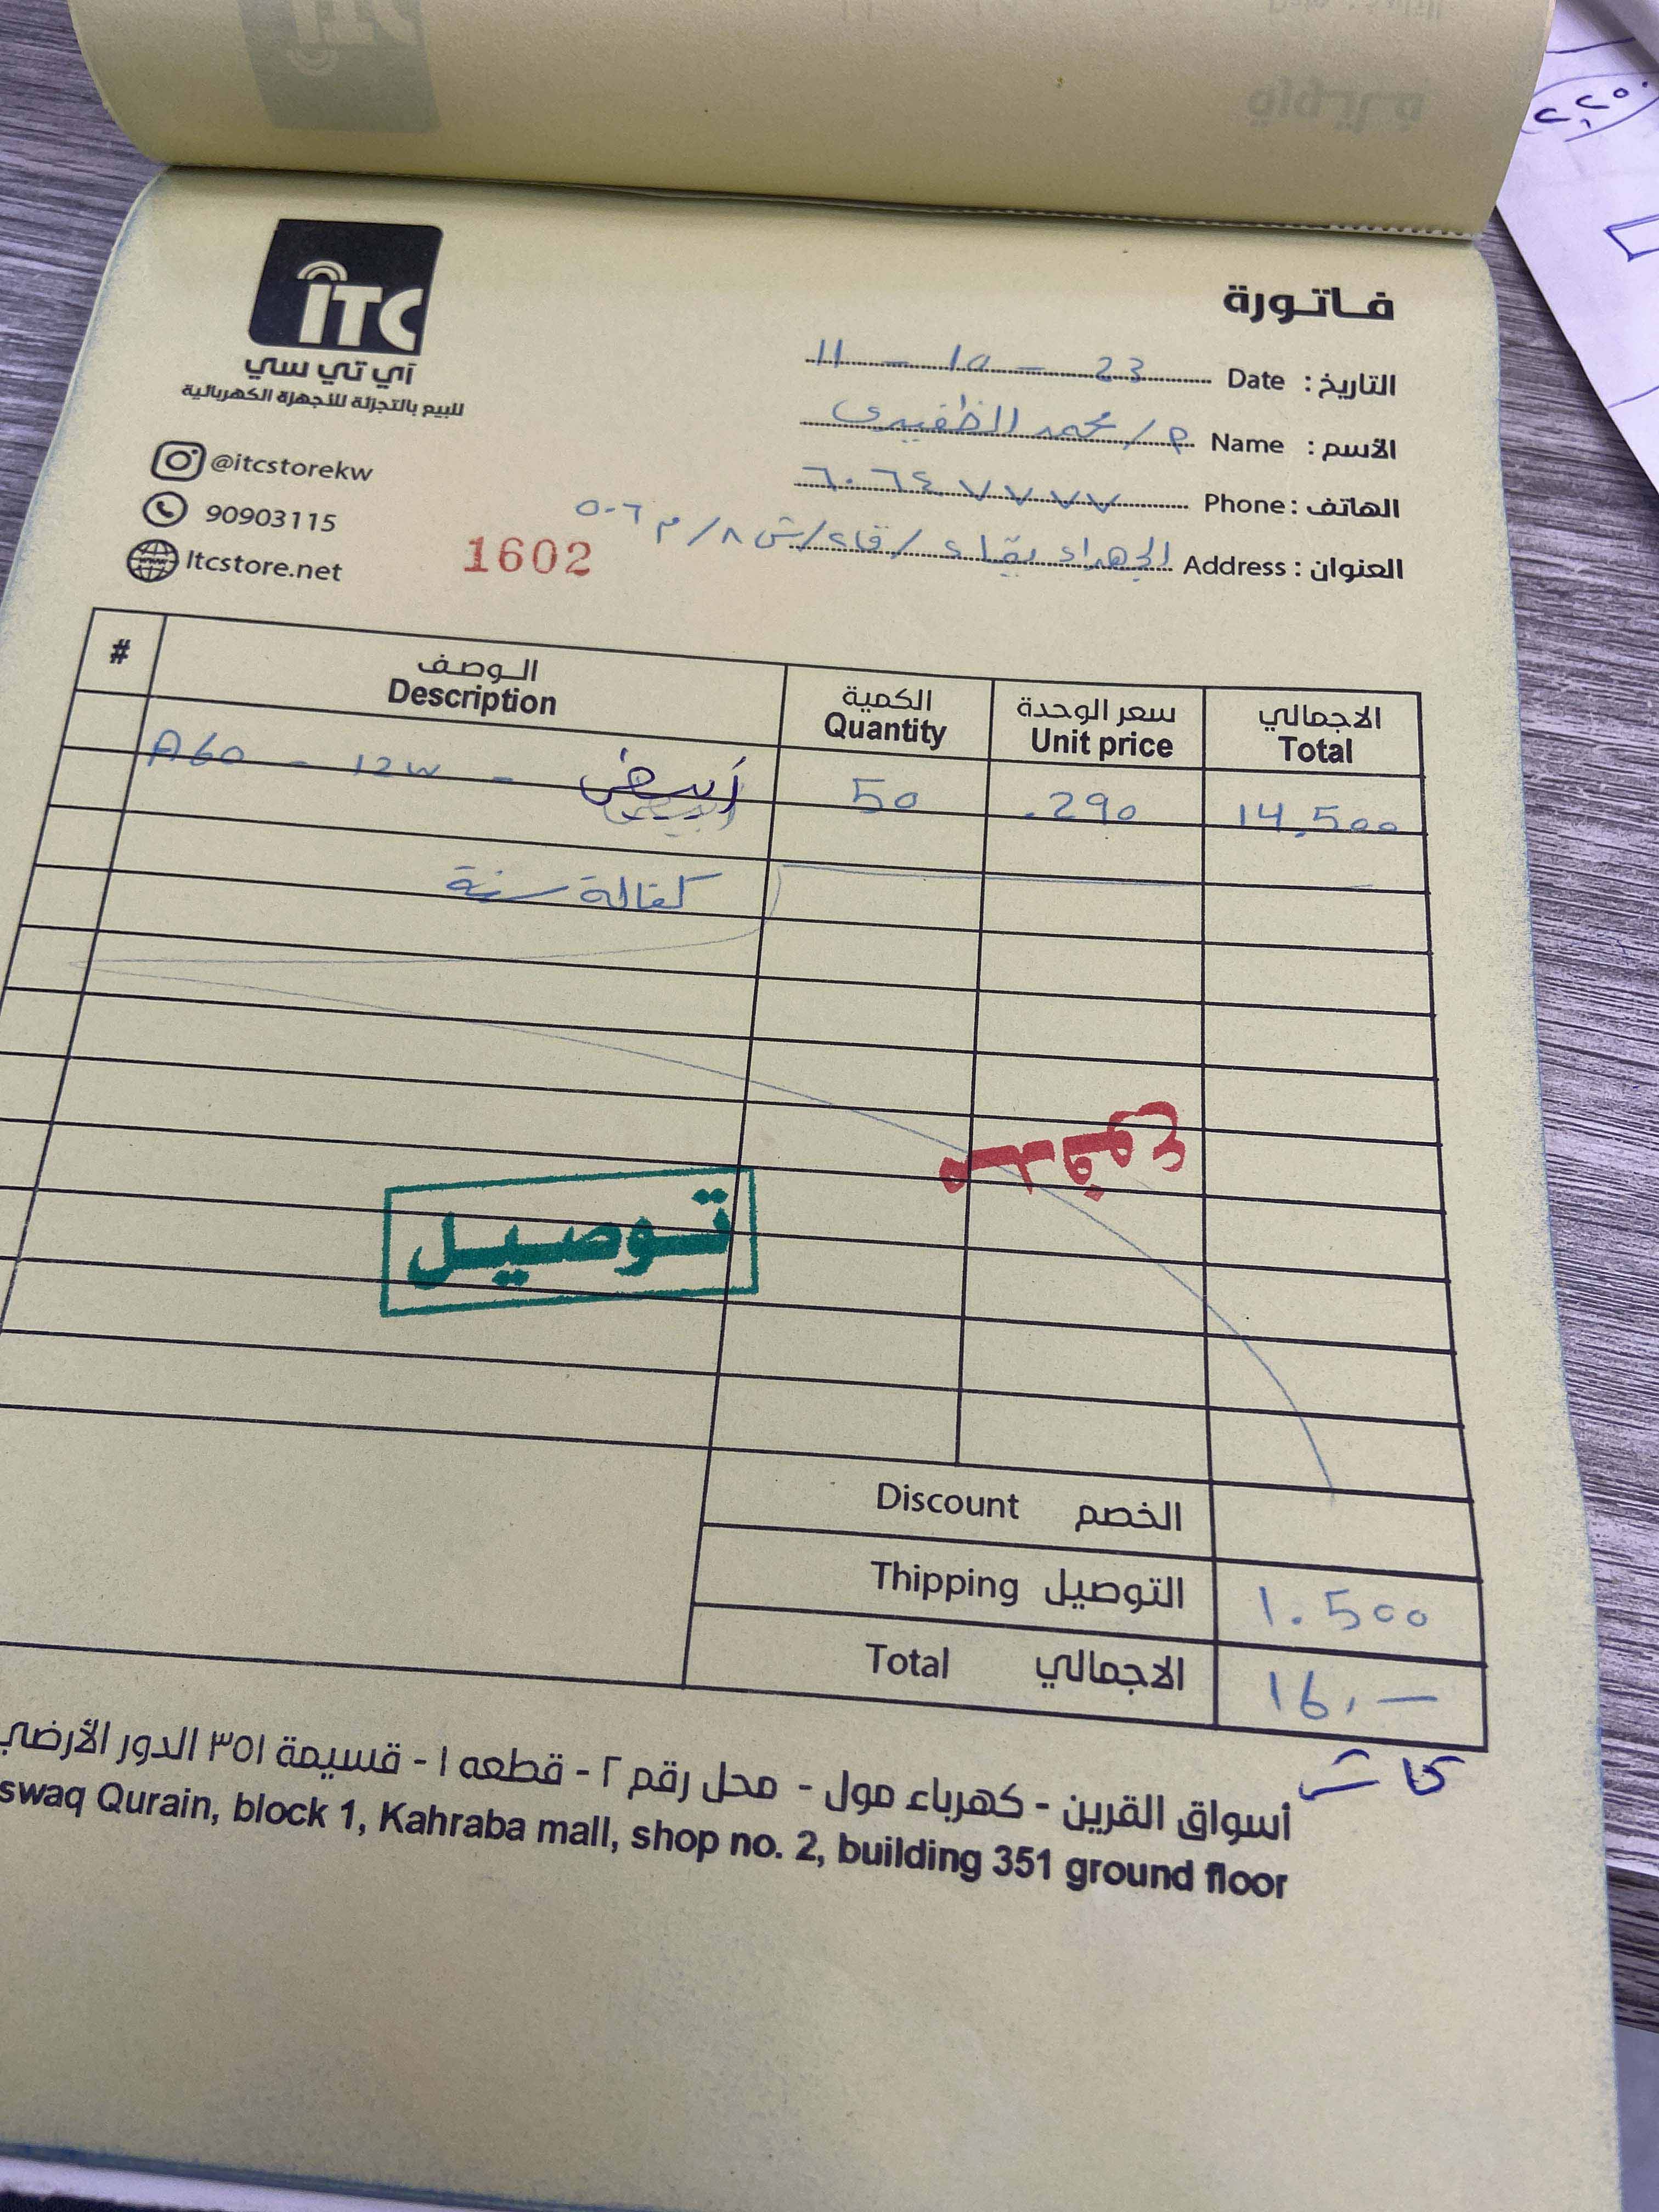 ITC
آي تي سي
للبيع بالتجزئة للأجهزة الكهربائية
@itcstorekw
90903115
Itcstore.net
1602
فـاتـورة
التاريخ : Date 11 - 10 - 23
الأسم : Name م/محمد الظفيري
الهاتف : Phone ٦٠٦٤٧٧٧٧
العنوان : Address الجهراء /ق٤/ش٨/م ٥٠٦
# الـوصـف الكمية سعر الوحدة الاجمالي
Description Quantity Unit price Total
A60 - 12W - أبيض 50 .290 14.500
كفالة سنة
مدفوع
توصيل
Discount الخصم
Thipping التوصيل 1.500
Total الاجمالي 16.-
أسواق القرين - كهرباء مول - محل رقم ٢ - قطعه ١ - قسيمة ٣٥١ الدور الأرضي
swaq Qurain, block 1, Kahraba mall, shop no. 2, building 351 ground floor